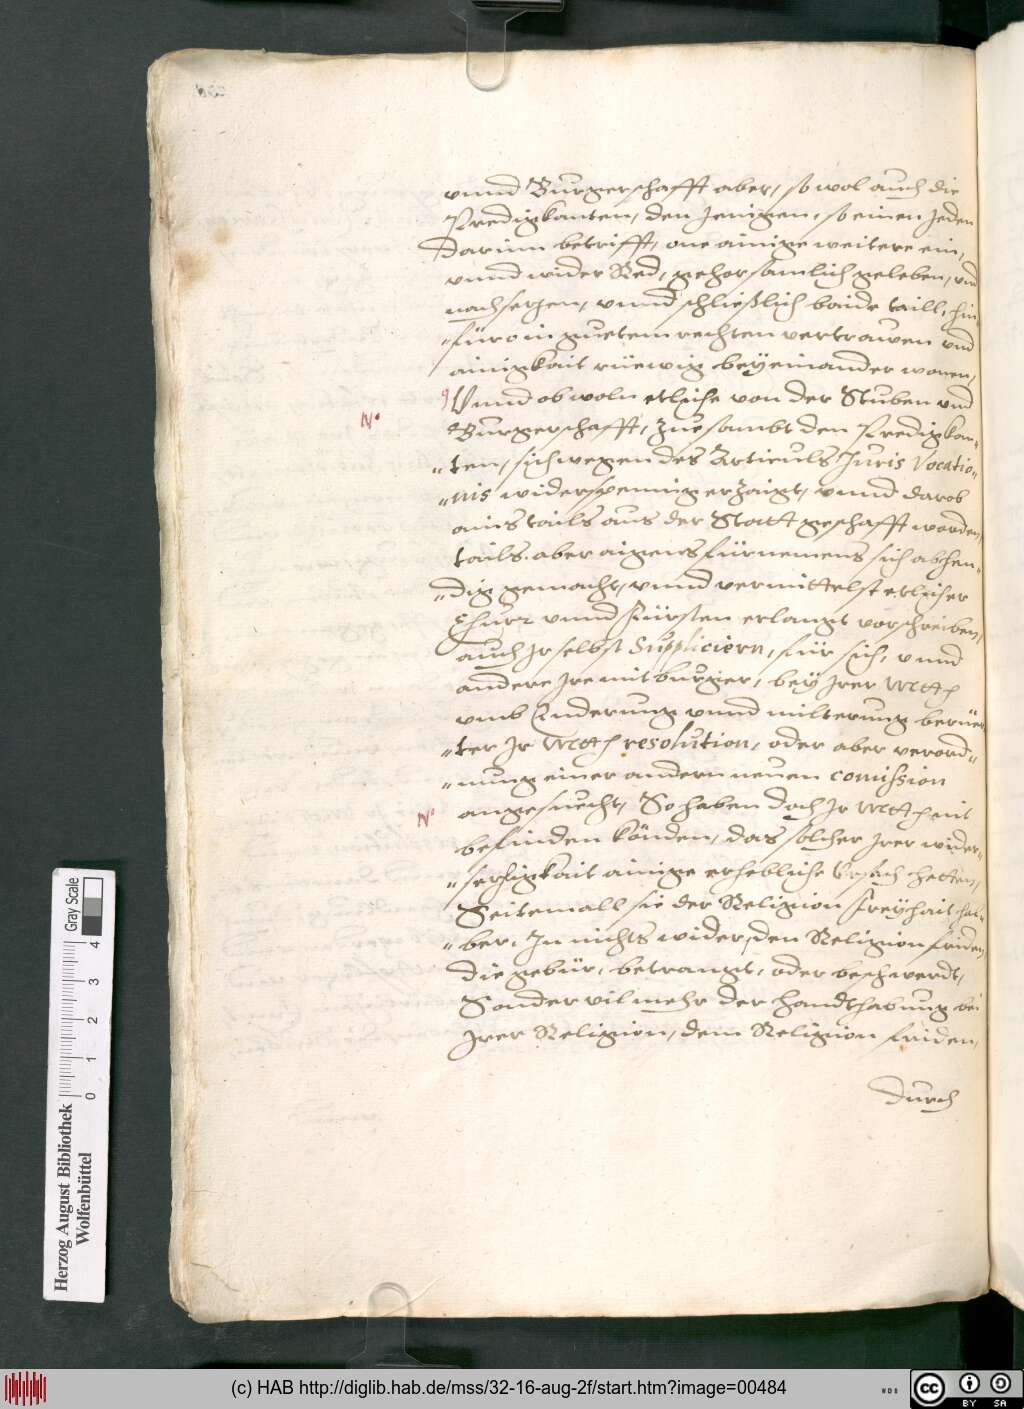 vnnd Burgerschafft aber, so wol auch die
Predigkanten, den Jenigen, so einen Jeden
darinn betrifft, one ainige weitere ein,
vnnd wider Red, gehorsamlich geleben, vnd
nachsetzen, vnnd schließlich baide taill, hin„
„füro in guetem rechten vertrawen vnd
ainigkait rüewig beÿeinander wonen,
Vnnd ob woln etliche von der Stuben vnd
N°
Burgerschafft, Zuesambt den Predigkan„
„ten, sich wegen des Articuls Juris Vocatio„
„nis widerspennig erzaigt, vnnd darob
ains tails aus der Statt geschafft worden,
tails aber aigens fürnemens sich abhen„
„dig gemacht, vnnd vermittelst etlicher
Chur: vnnd Fürsten erlangt vorschreiben,
auch Jr selbst Suppliciern, für sich, vnnd
andere Jre mitburger, beÿ Jrer Mtt
vmb Enderung vnnd milterung berüer„
„ter Jr Mtt resolution, oder aber verord„
„nung einer andern neuen comission
angesuecht, So haben doch Jr Mtt nit
N°
befinden könden, das solcher Jrer wider„
„setzigkait ainige erhebliche Vrsach hetten,
Seitemall sie der Religion freÿhait hal„
„ber, Jn nichts wider, den Religion friden
die gebür, betrangt, oder beschwerdt,
Sonder vilmehr der handthabung bei
Jrer Religion, dem Religion friden,
durch
Herzog August Bibliothek
Wolfenbüttel
0 1 2 3 4
Gray Scale
(c) HAB http://diglib.hab.de/mss/32-16-aug-2f/start.htm?image=00484
WDB
cc BY SA